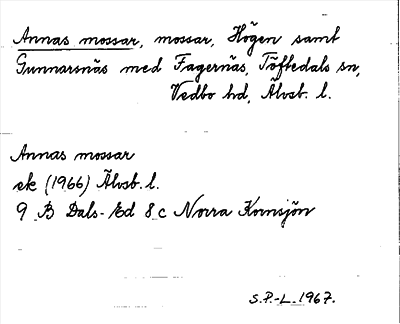 Annas mossar, mossar, Högen samt
Gunnarsnäs med Fagernäs, Töftedals sn,
Vedbo hd, Älvsb. l.
Annas mossar
ek (1966) Älvsb. l.
9 B Dals-Ed 8 c Norra Kornsjön
S.P.-L. 1967.